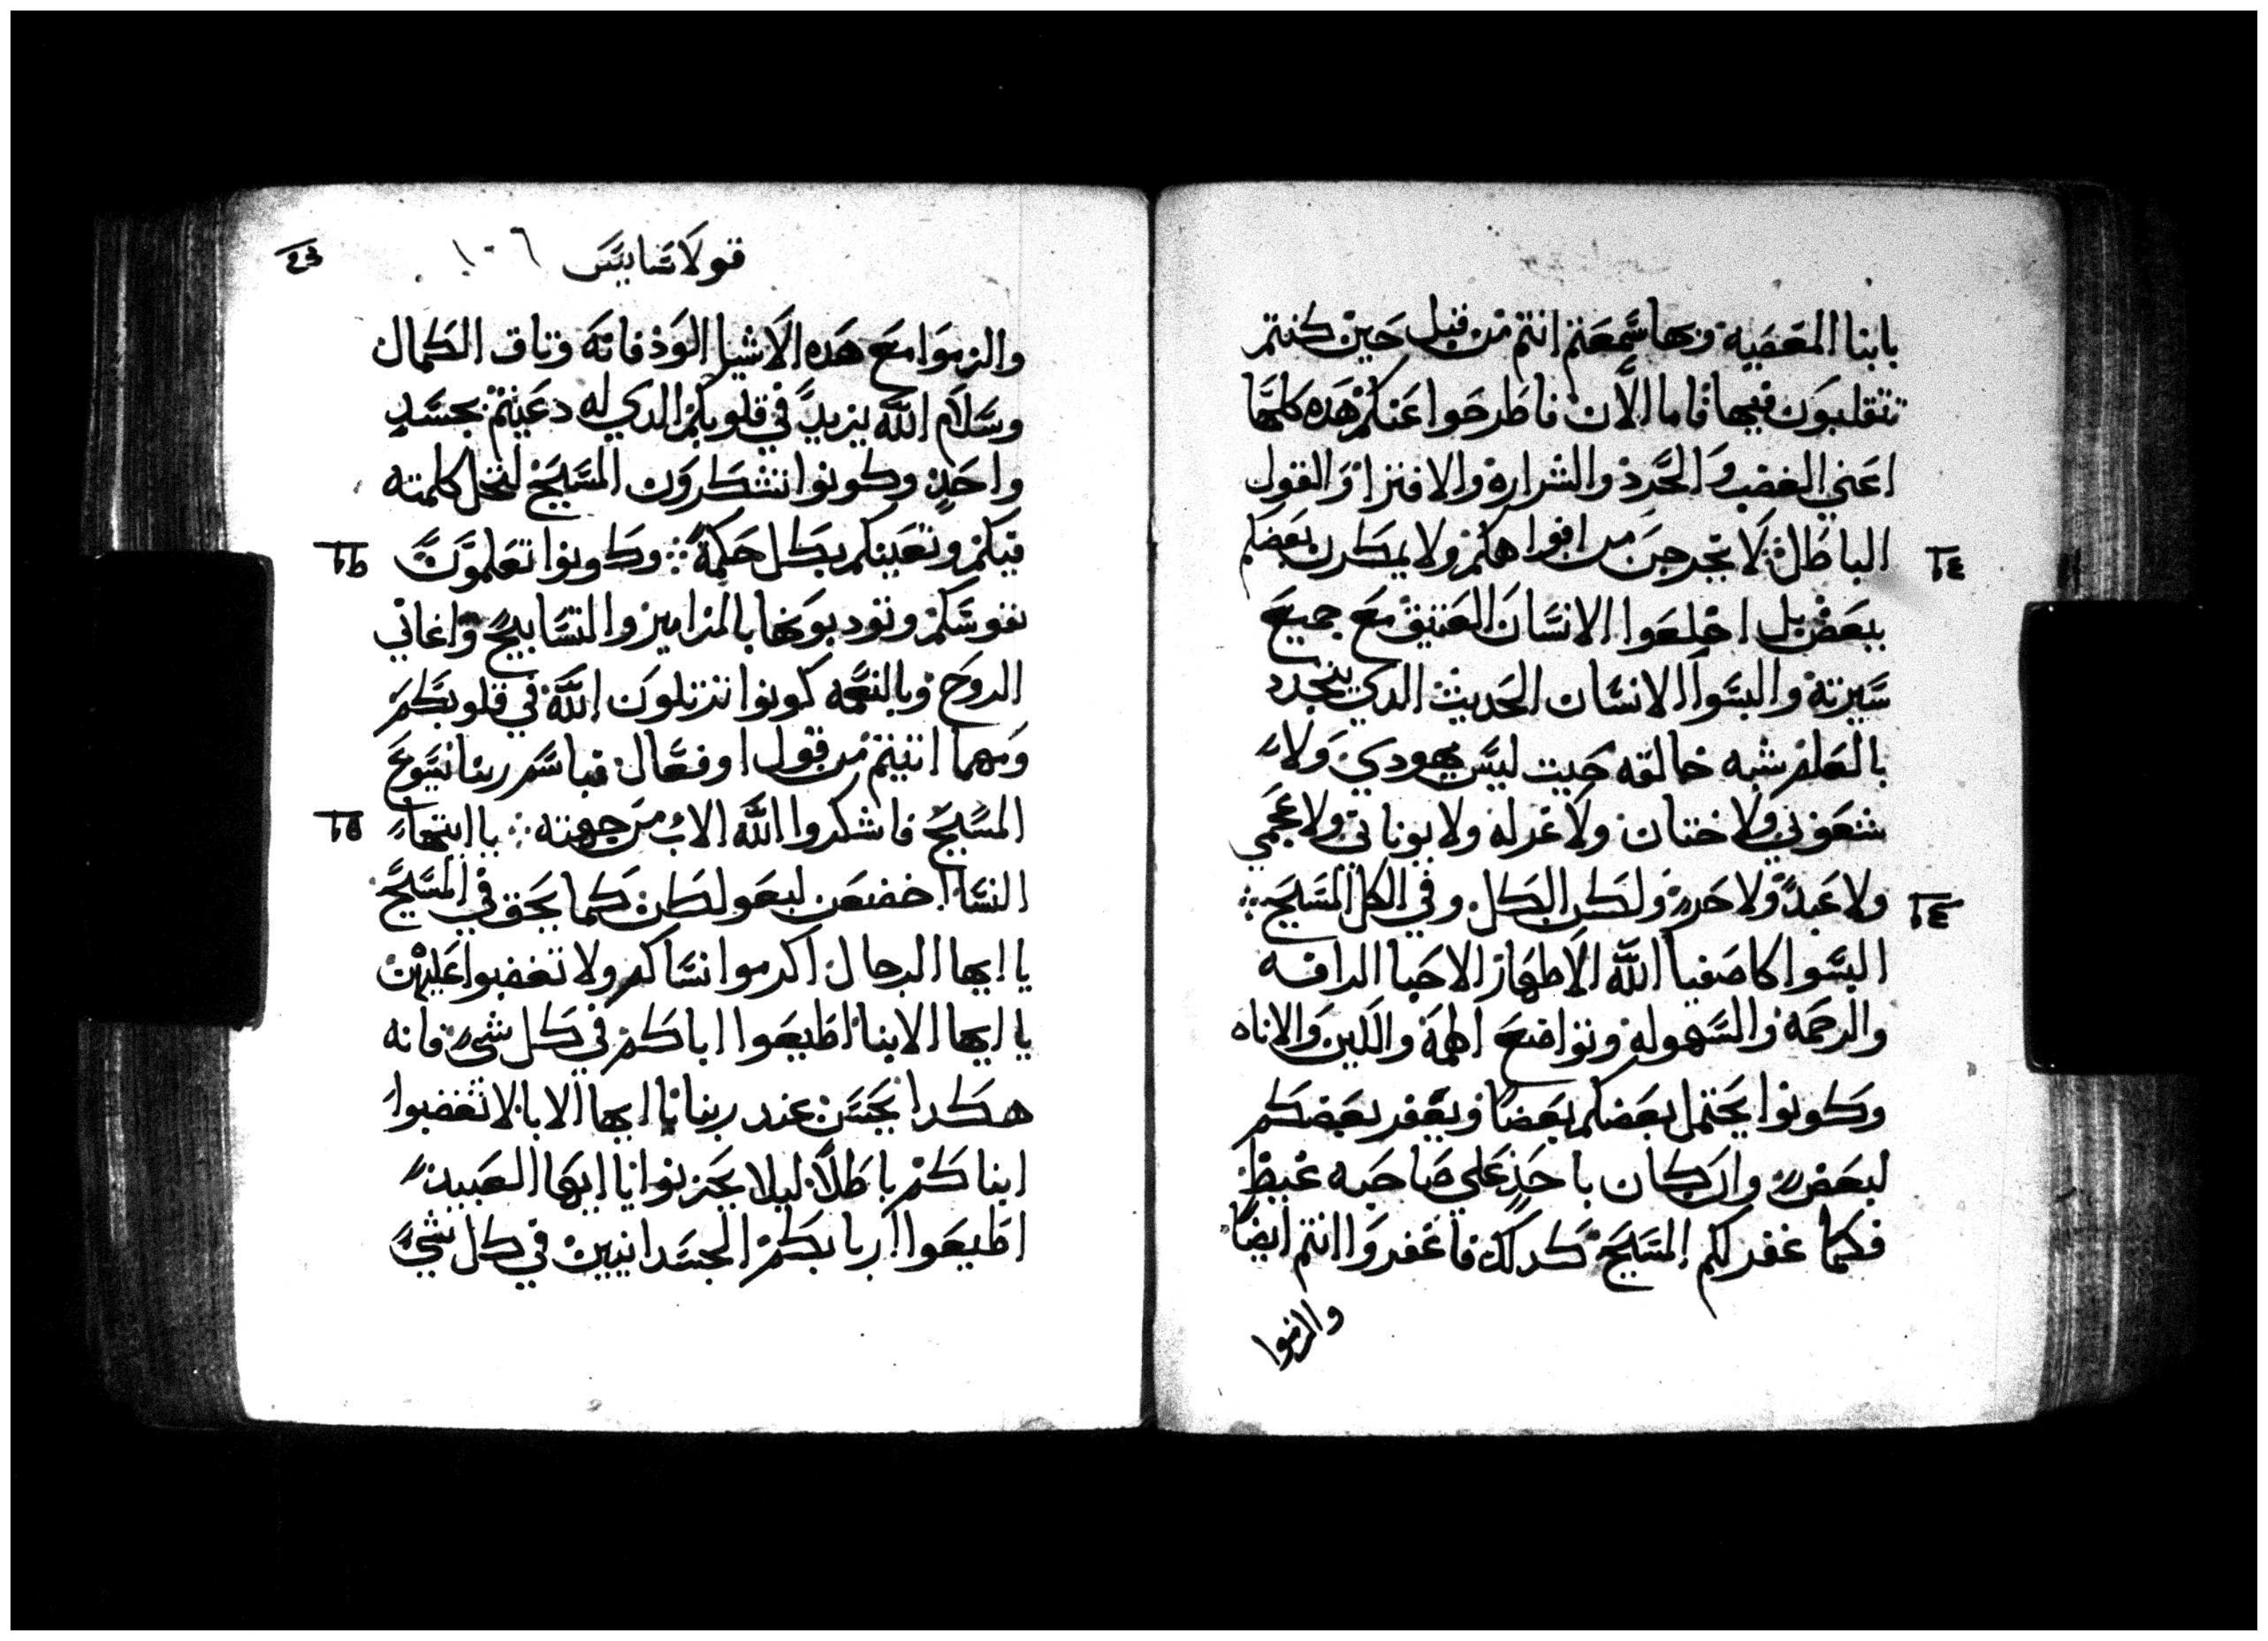 بابنا المعصيه وبها سمعتم انتم من قبل حين كنتم
تتقلبون فيها فاما الان فاطرحوا عنكم هده كلها
اعني الغضب والحرد والشراره والافترا والقول
الباطل لا تخرجن من افواهكم ولا يمكرن بعضكم
ببعض بل اخلعوا الانسان العتيق مع جميع
سيرته والبسوا الانسان الحديث الدي يتجدد
بالعلم شبه خالقه حيت ليس يهودي ولا
شعوني ولا ختان ولا غرله ولا يوناني ولا عجمي
ولا عبد ولا حر ولكن الكل وفي الكل المسيح
البسوا كاصفيا الله الاطهار الاحبا الرافه
والرحمه والسهوله وتواضع الهمة واللين والاناه
وكونوا يحتمل بعضكم بعضا ويغفر بعضكم
لبعض وان كان باحد علي صاحبه غيظ
فكما غفر لكم المسيح كدلك فاغفروا انتم ايضا
والزموا
قولاسايس ١٠٦
والزموا مع هده الاشيا الود فانه وتاق الكمال
وسلام الله يزيد في قلوبكم الدي له دعيتم بجسد
واحد وكونوا تشكرون المسيح لتحل كلمته
فيكم وتعينكم بكل حكمة وكونوا تعلمون
نفوسكم وتودبونها بالمزامير والتسابيح واغاني
الروح وبالنعمه كونوا ترتلون الله في قلوبكم
ومهما اتيتم من قول او فعال فباسم ربنا يسوع
المسيح فاشكروا الله الاب من جهته يا ايتها
النسا اخضعن لبعولكن كما يحق في المسيح
يا ايها الرجال اكرموا نساكم ولا تغضبوا عليهن
يا ايها الابنا اطيعوا اباكم في كل شي فانه
هكدا يحسن عند ربنا يا ايها الابا لا تغضبوا
ابناكم باطلا ليلا يحزنوا يا ايها العبيد
اطيعوا اربابكم الجسدانيين في كل شي